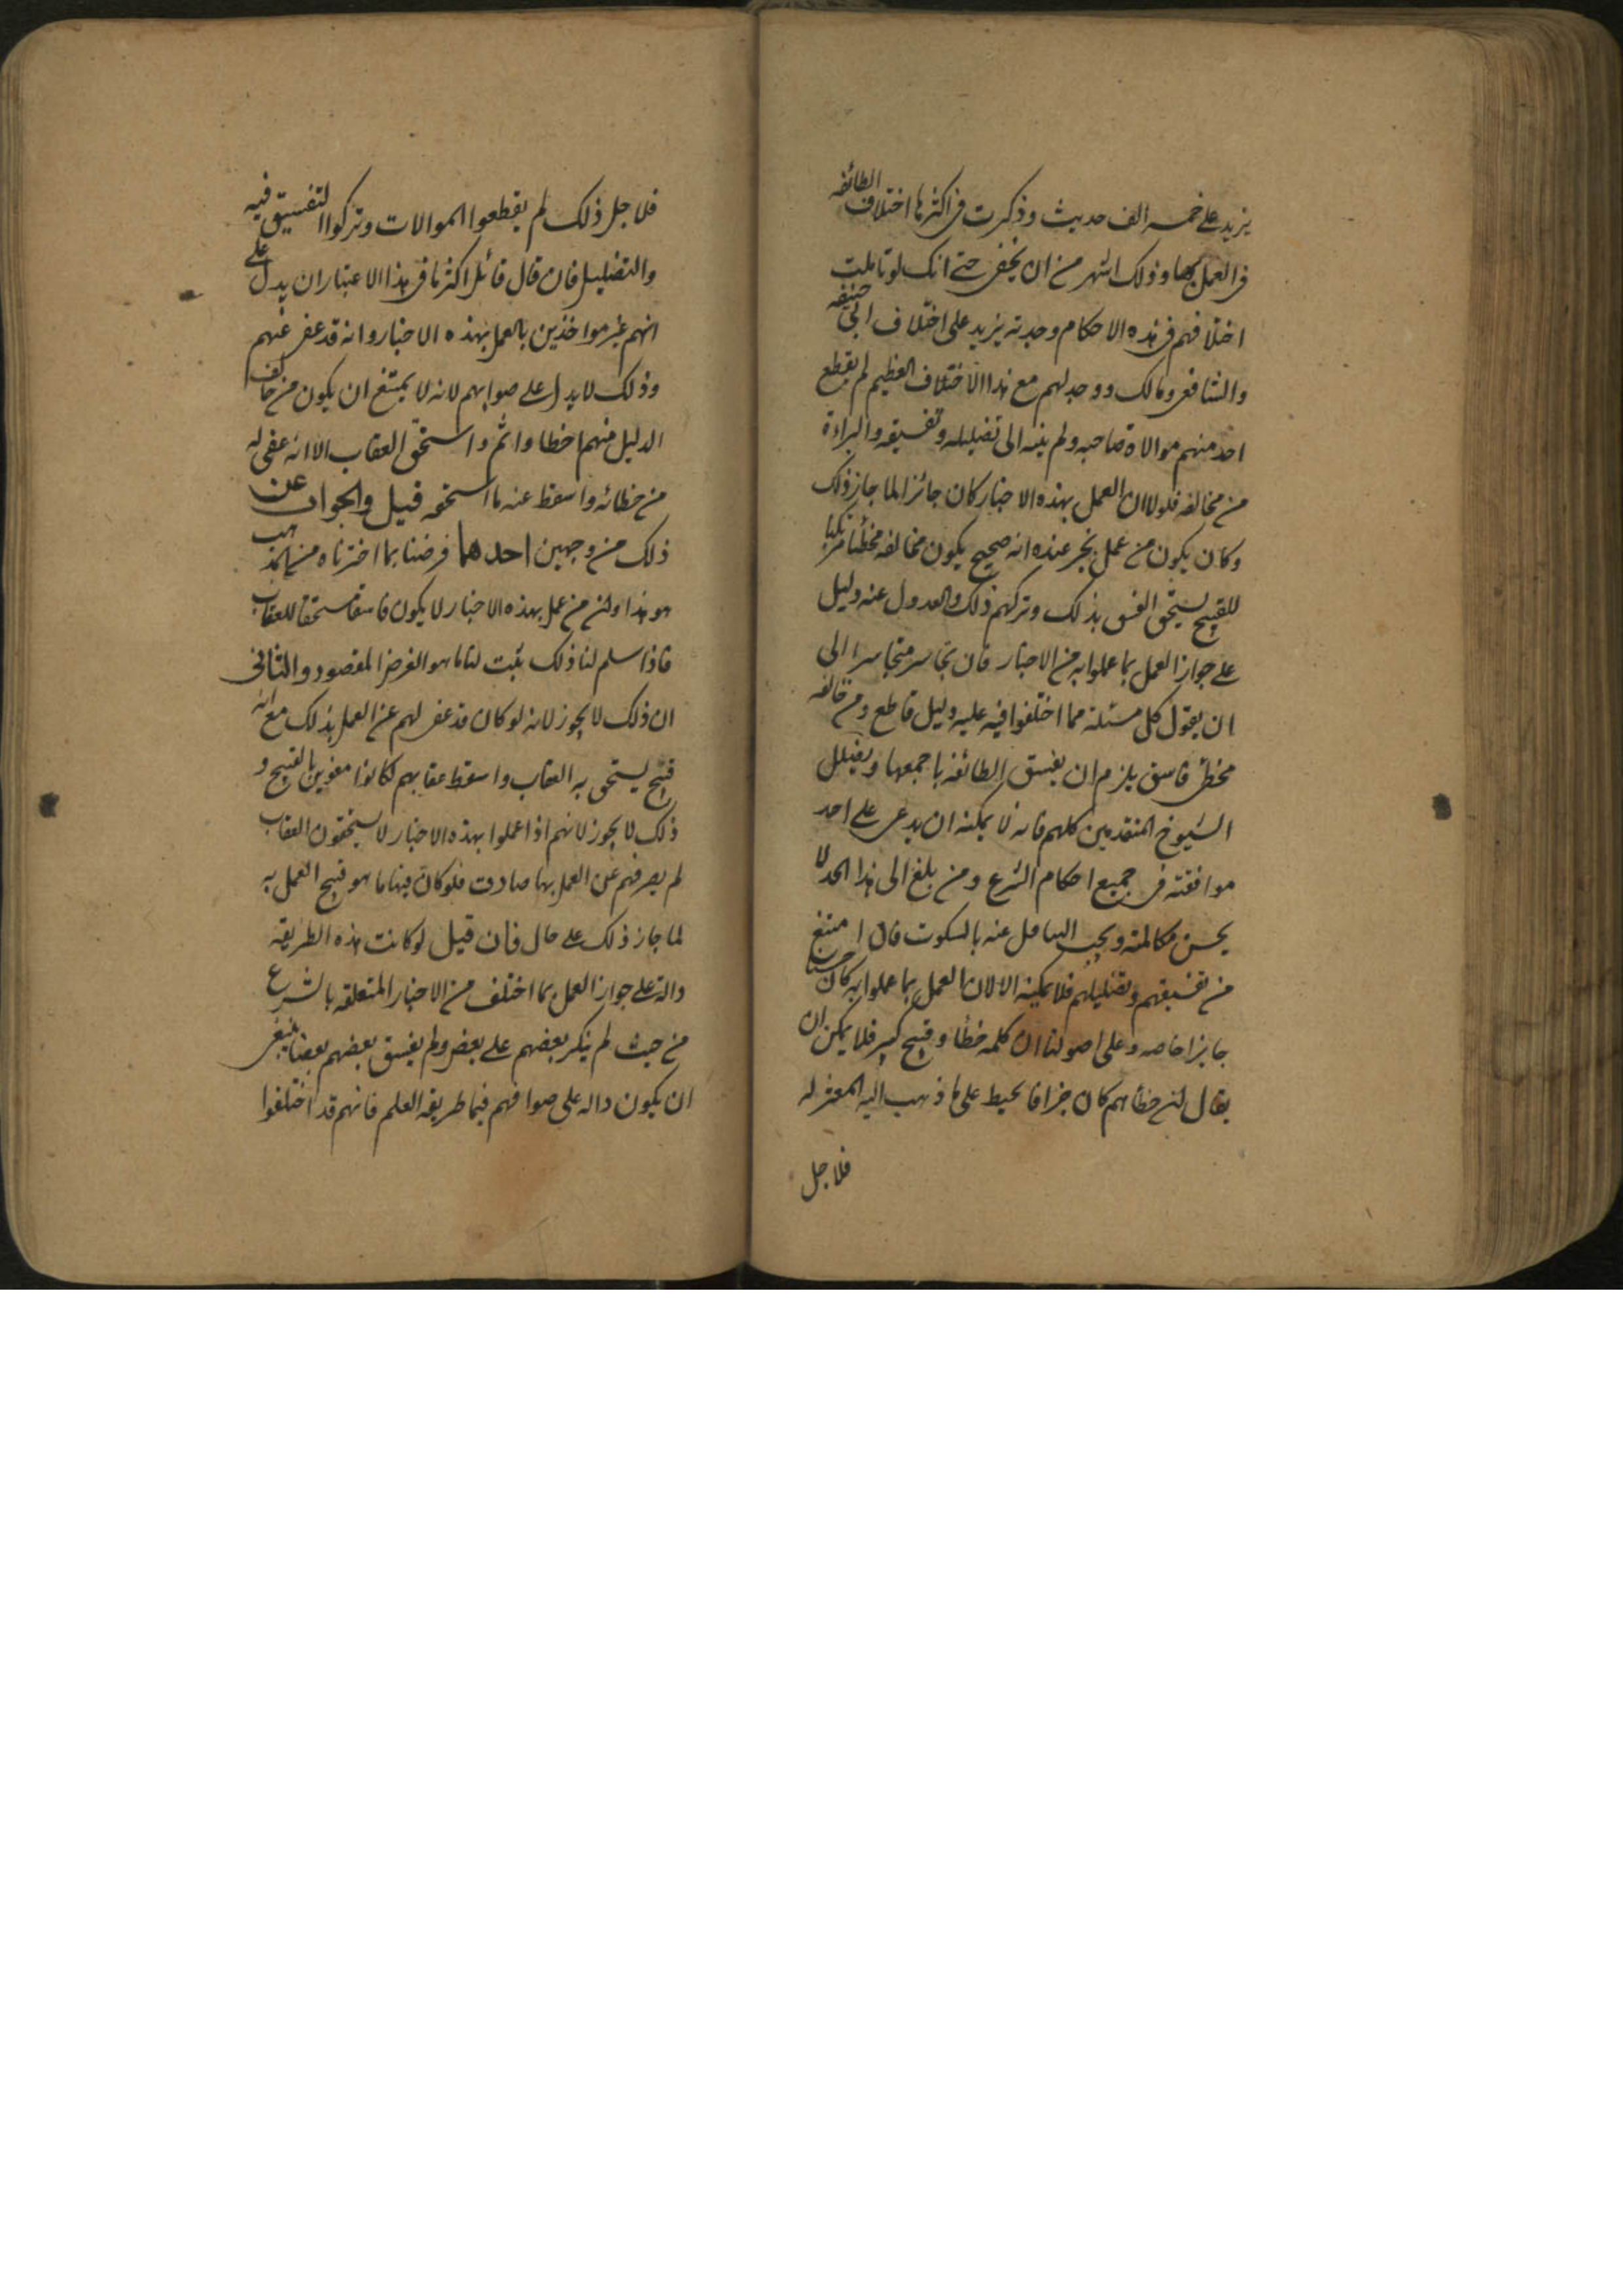 يزيد على خمسه الف حديث وذكرت فى اكثرها اختلاف الطائفه
فى العمل بها وذلك اشهر من ان يخفى حتى انك لو تاملت
اختلافهم فى هذه الاحكام وجدته يزيد على اختلاف ابى حنيفه
والشافعى ومالك ووجدتهم مع هذا الاختلاف العظيم لم يقطع
احد منهم موالاة صاحبه ولم ينته الى تضليله وتفسيقه والبراءة
من مخالفه فلولا ان العمل بهذه الاخبار كان جائزا لما جاز ذلك
وكان يكون من عمل بخبر عنده انه صحيح يكون مخالفه مخطئا مرتكبا
للقبيح يستحق الفسق بذلك وتركهم ذلك والعدول عنه دليل
على جواز العمل بما عملوا به من الاخبار فان تجاسر متجاسر الى
ان يقول كل مسئلة مما اختلفوا فيه عليه دليل قاطع ومن خالفه
مخطئ فاسق يلزم ان يفسق الطائفه باجمعها ويضلل
الشيوخ المتقدمين كلهم فانه لا يمكنه ان يدعى على احد
موافقته فى جميع احكام الشرع ومن بلغ الى هذا الحد لا
يحسن مكالمته ويجب التغافل عنه بالسكوت فان امتنع
من تفسيقهم وتضليلهم فلا يمكنه الا لان العمل بما عملوا به كان حسنا
جايزا خاصه وعلى اصولنا ان كلمه خطأ وقبيح كبير فلا يمكن ان
يقال ان خطأهم كان جزافا يحيط على ما ذهب اليه المعتزله
فلاجل
فلاجل ذلك لم يقطعوا الموالات وتركوا التفسيق فيه
والتضليل فان قال قائل اكثر ما فى هذا الاعتبار ان يدل على
انهم غير مواخذين بالعمل بهذه الاخبار وانه قد عفى عنهم
وذلك لا يدل على صوابهم لانه لا يمتنع ان يكون من خالف
الدليل منهم اخطا واثم واستحق العقاب الا انه عفى له
من خطائه واسقط عنه ما استحقه قيل والجواب عن
ذلك من وجهين احدهما فرضنا بما اخترناه من المذهب
هو هذا وان من عمل بهذه الاخبار لا يكون فاسقا مستحقا للعقاب
فاذا سلم لنا ذلك ثبت لنا ما هو الغرض المقصود والثانى
ان ذلك لا يجوز لانه لو كان قد عفى لهم عن العمل بذلك مع انه
قبيح يستحق به العقاب واسقط عقابهم لكانوا مغرين بالقبيح و
ذلك لا يجوز لانهم اذا عملوا بهذه الاخبار لا يستحقون العقاب
لم يصرفهم عن العمل بها صارف فلو كان فيها ما هو قبيح العمل به
لما جاز ذلك على حال فان قيل لو كانت هذه الطريقه
دالة على جواز العمل بما اختلف من الاخبار المتعلقه بالشرع
من حيث لم ينكر بعضهم على بعض ولم يفسق بعضهم بعضا ينبغى
ان يكون داله على صوافهم فيما طريقه العلم فانهم قد اختلفوا